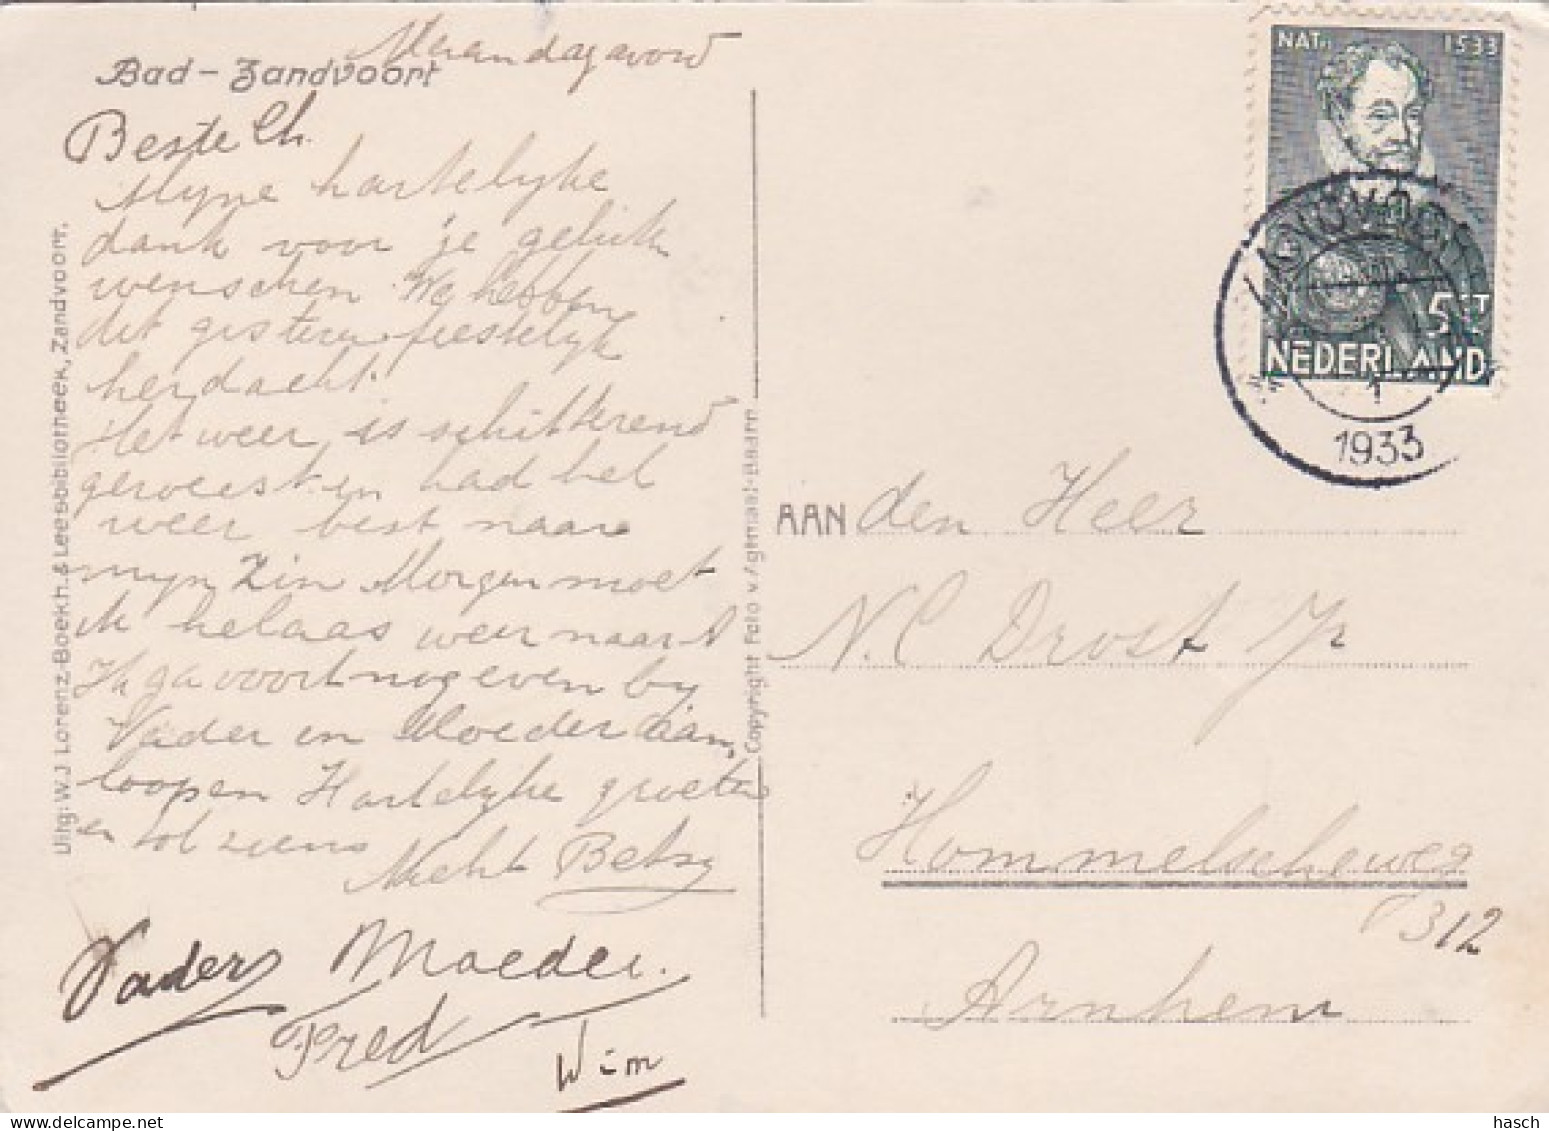 Bad - Zandvoort
Maandagavond
Beste Ch.
Myne hartelyke
dank voor je geluk
wenschen. We hebben
dit gisteren feestelyk
herdacht.
Het weer is schitterend
geweest en had het
weer best naar
myn zin Morgen moet
ik helaas weer naar A
Ik ga voort nog even by
Vader en Moeder aan
loopen Hartelyke groeten
en tot ziens
Nicht Betsy
Vader Moeder.
Fred
Wim
Uitg: W. J. Lorenz-Boekh. & Leesbibliotheek, Zandvoort.
Copyright Foto v/Agtmaal-Baarn
NAT. 1533
5 CT
NEDERLAND
ZANDVOORT
1
1933
AAN den Heer
N. C. Drost Jr
Hommelscheweg
312
Arnhem
hasch